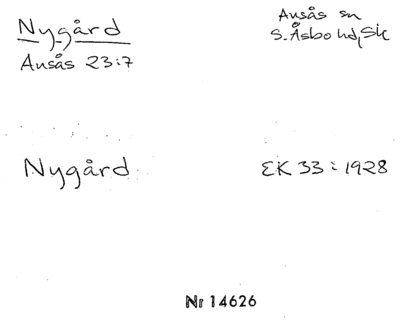 Nygård
Ausås sn
Ausås 23:7
S. Åsbo hd, Sk
Nygård
EK 33 : 1928
Nr 14626